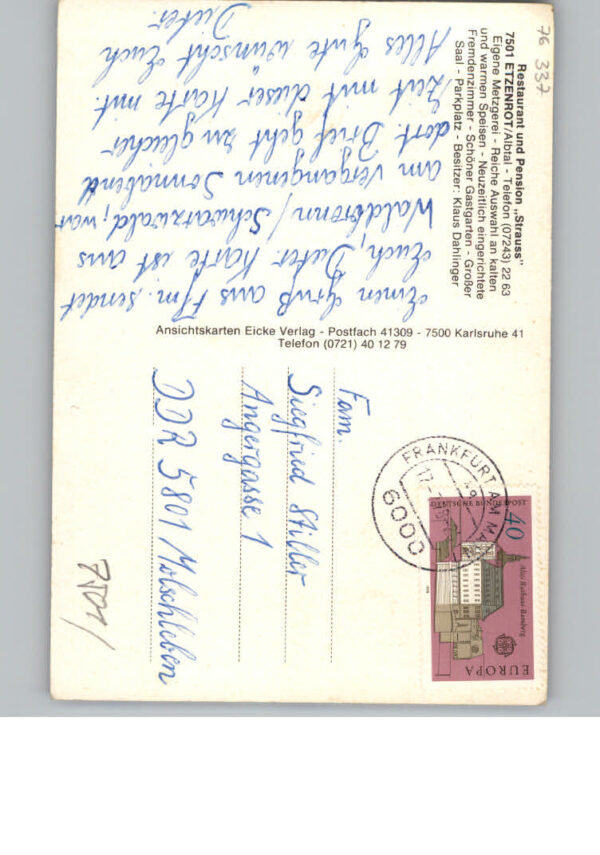 Restaurant und Pension „Strauss"
7501 ETZENROT/Albtal - Telefon (07243) 22 63
Eigene Metzgerei - Reiche Auswahl an kalten
und warmen Speisen - Neuzeitlich eingerichtete
Fremdenzimmer - Schöner Gastgarten - Großer
Saal - Parkplatz - Besitzer: Klaus Dahlinger
76 337
Einen Gruß aus Ffm. sendet
Euch, Dieter. Karte ist aus
Waldbronn / Schwarzwald, war
am vergangenen Sonnabend
dort. Brief geht zu gleicher
Zeit mit dieser Karte mit.
Alles Gute wünscht Euch
Dieter.
Ansichtskarten Eicke Verlag - Postfach 41309 - 7500 Karlsruhe 41
Telefon (0721) 40 12 79
Fam.
Siegfried Stiller
Angergasse 1
DDR 5801 Molschleben
7501/
FRANKFURT AM MA
6000
DEUTSCHE BUNDESPOST
40
Altes Rathaus Bamberg
EUROPA